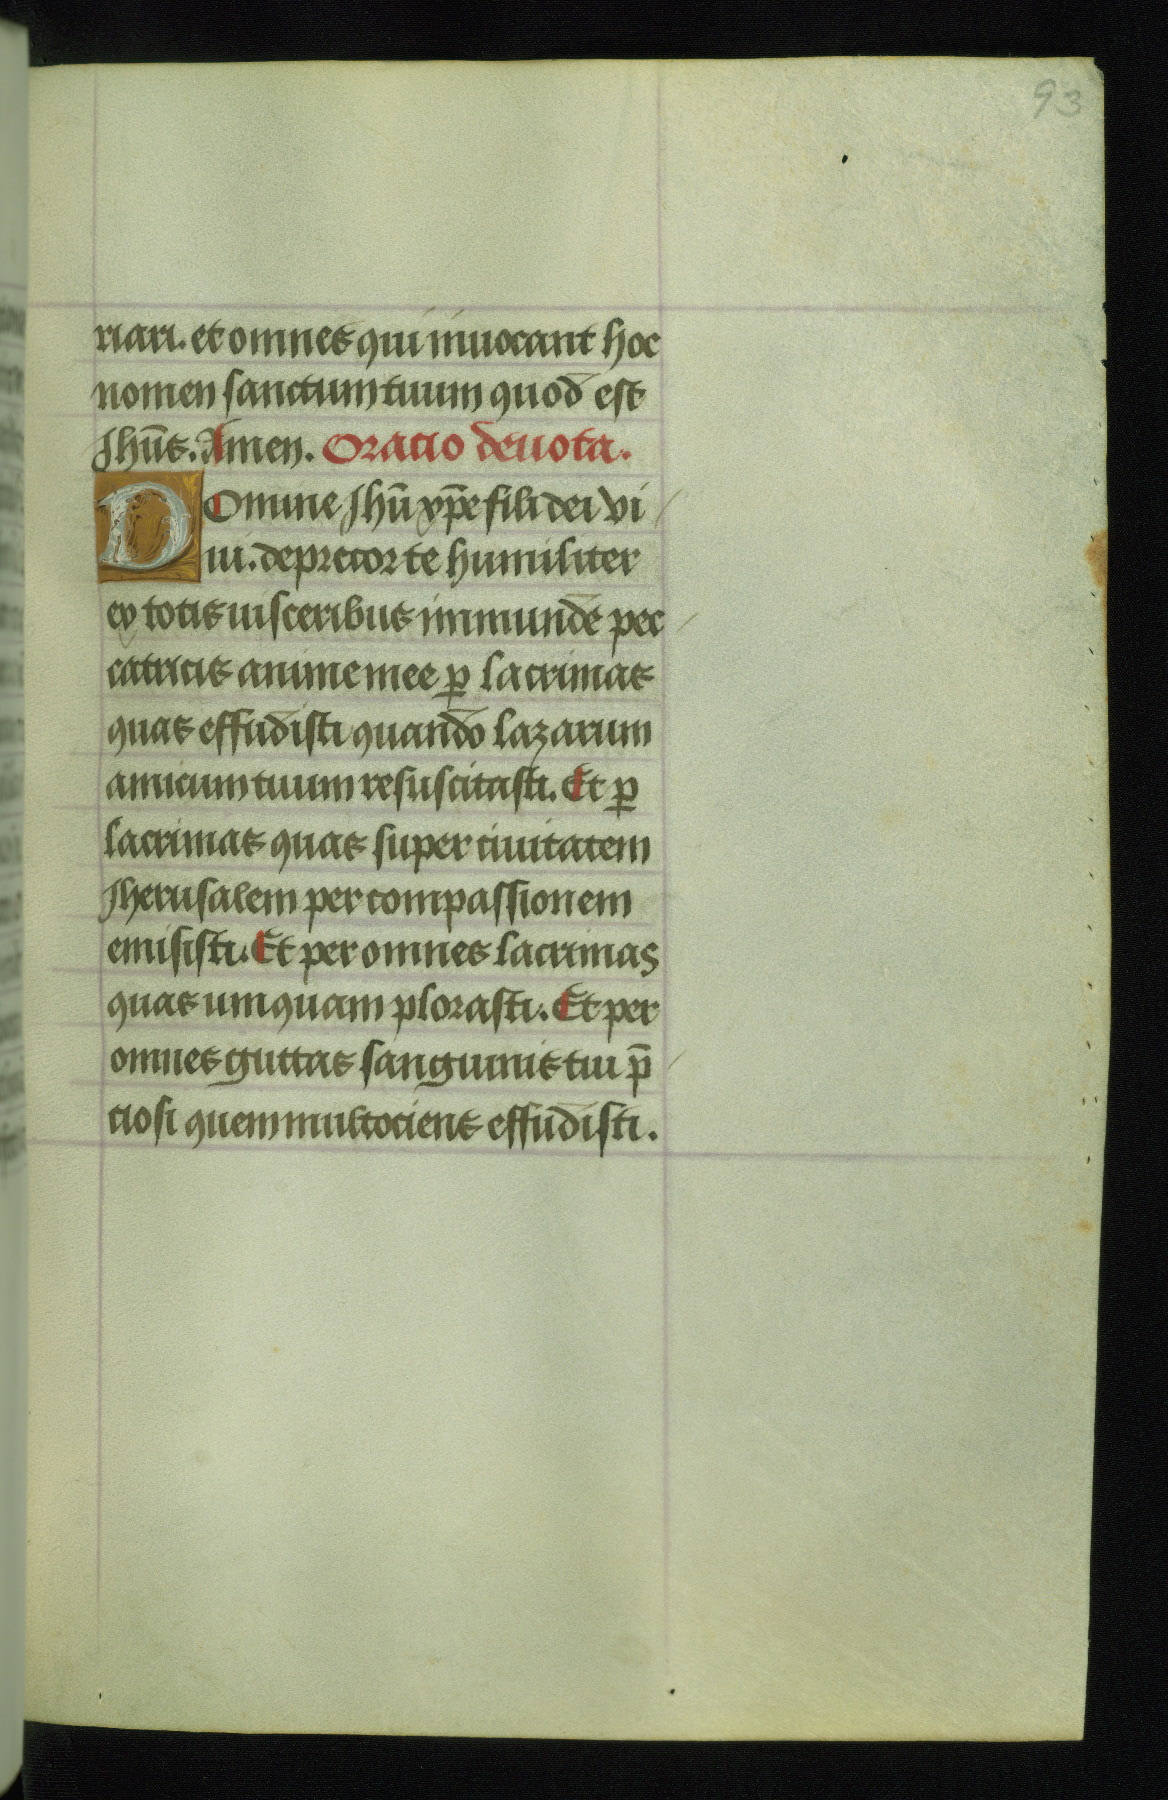 93
riari. et omnes qui inuocant hoc
nomen sanctum tuum quod est
Jhūs. Amen. Oracio deuota.
DOmine Jhū xp̄e fili dei vi
ui. deprecor te humiliter
ex totis uisceribus immunde pec
catricis anime mee ꝑ lacrimas
quas effudisti quando lazarum
amicum tuum resuscitasti. Et ꝑ
lacrimas quas super ciuitatem
Jherusalem per compassionem
emisisti. Et per omnes lacrimas
quas umquam plorasti. Et per
omnes guttas sanguinis tui p̄
ciosi quem multociens effudisti.